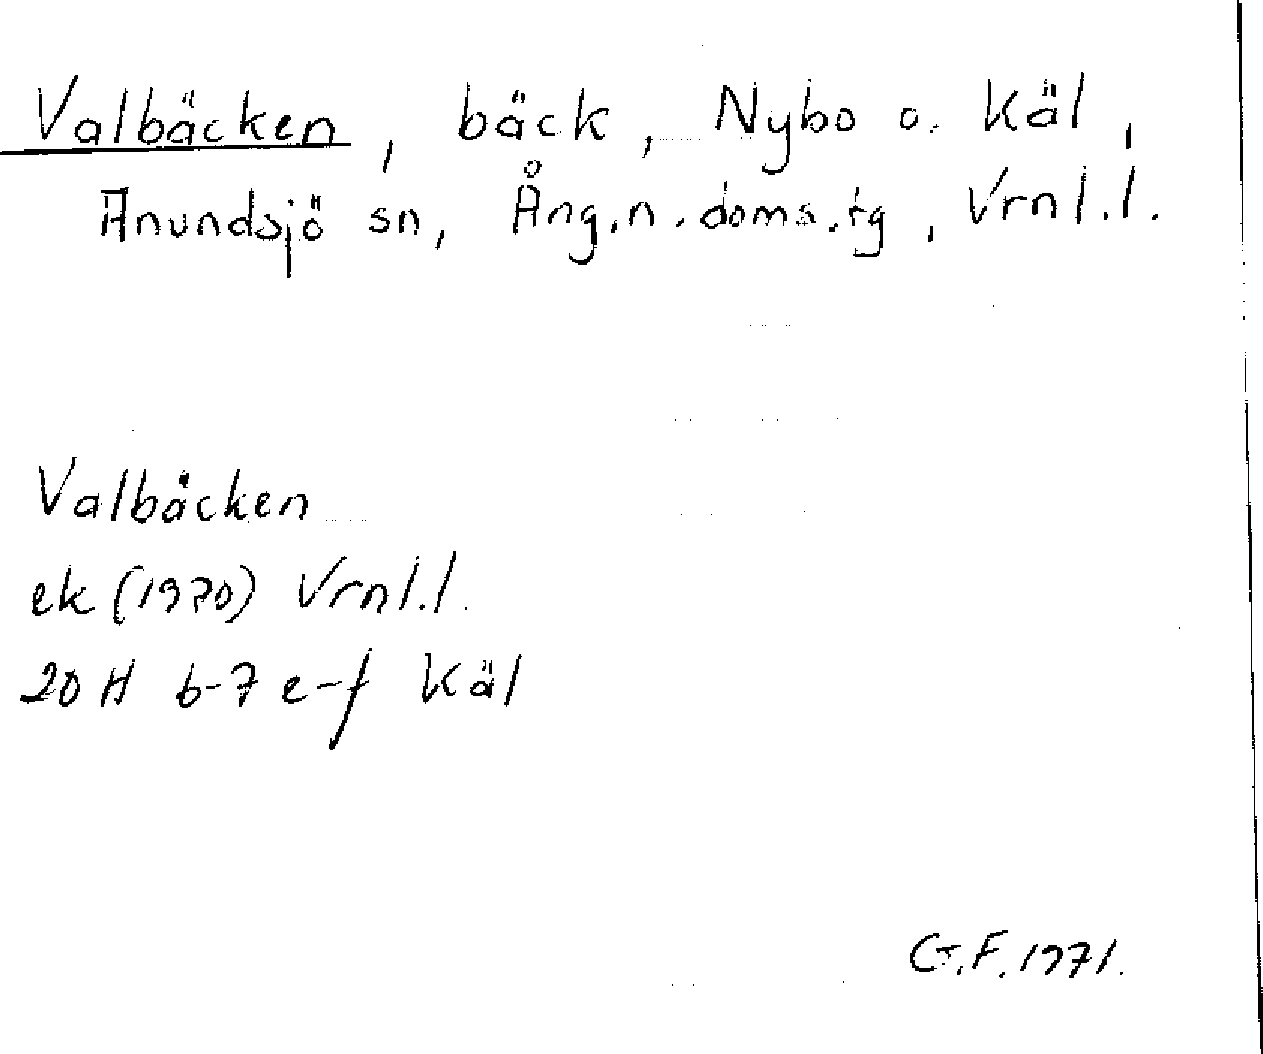 Valbäcken, bäck, Nybo o. Käl,
Anundsjö sn, Ång.n.doms.tg, Vrnl.l.
Valbäcken
ek (1970) Vrnl.l.
20 H 6-7 e-f Käl
G.F. 1971.